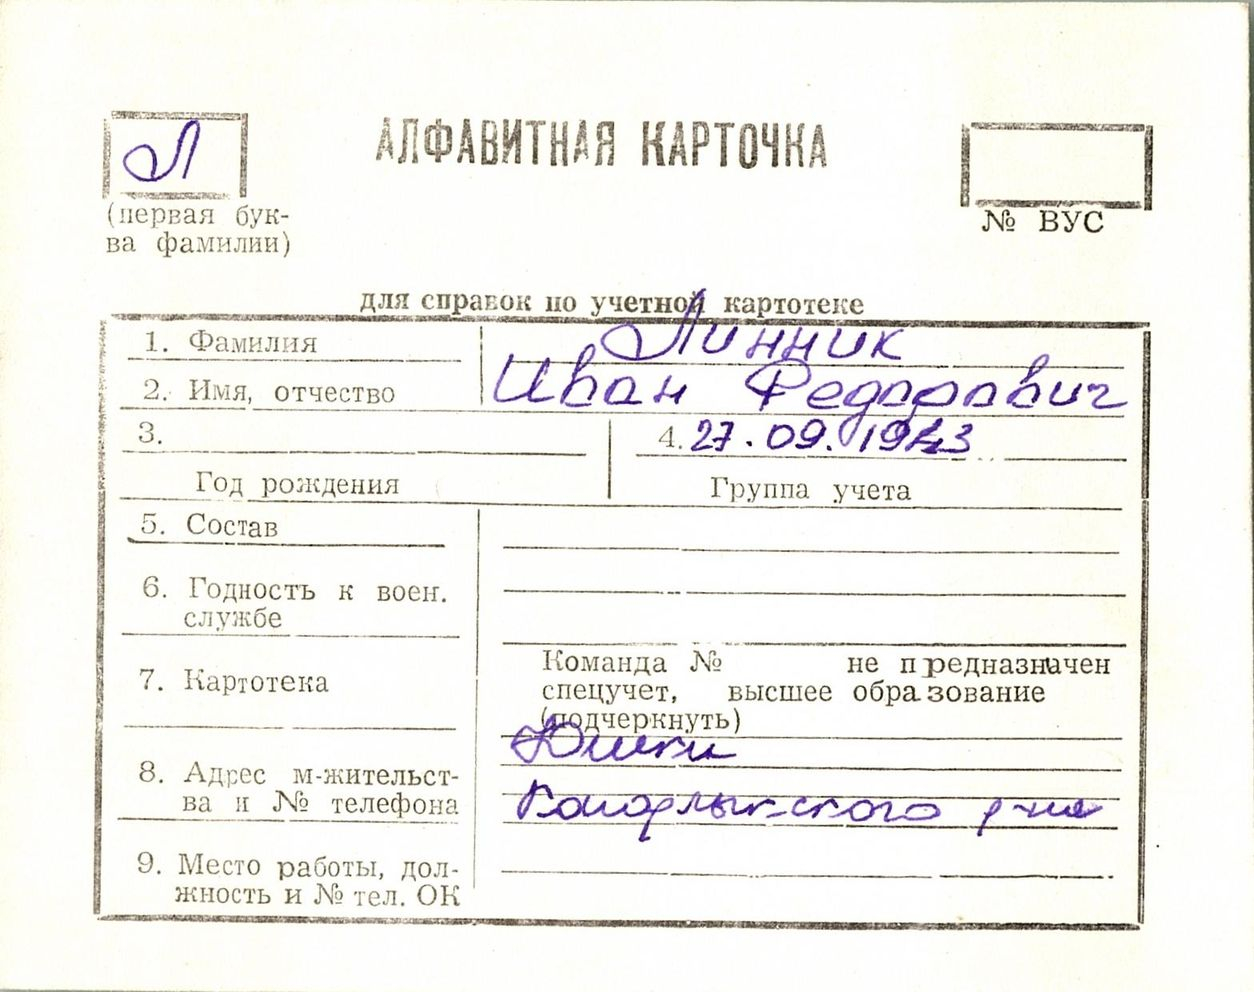 Л
АЛФАВИТНАЯ КАРТОЧКА
(первая бук-
ва фамилии)
№ ВУС
для справок по учетной картотеке
1. Фамилия Линник
2. Имя, отчество Иван Федорович
3. 4. 27.09.1943
Год рождения Группа учета
5. Состав
6. Годность к воен.
службе
7. Картотека
Команда № не предназначен
спецучет, высшее образование
(подчеркнуть)
8. Адрес м-жительст-
ва и № телефона
Юшки
Кагарлыкского р-на
9. Место работы, дол-
жность и № тел. ОК